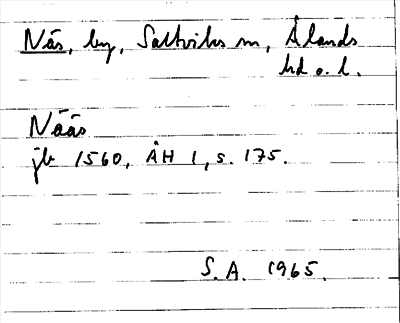 Näs, by, Saltviks sn, Ålands
hd o. l.
Nääs
jb 1560, ÅH 1, s. 175.
S. A. 1965.